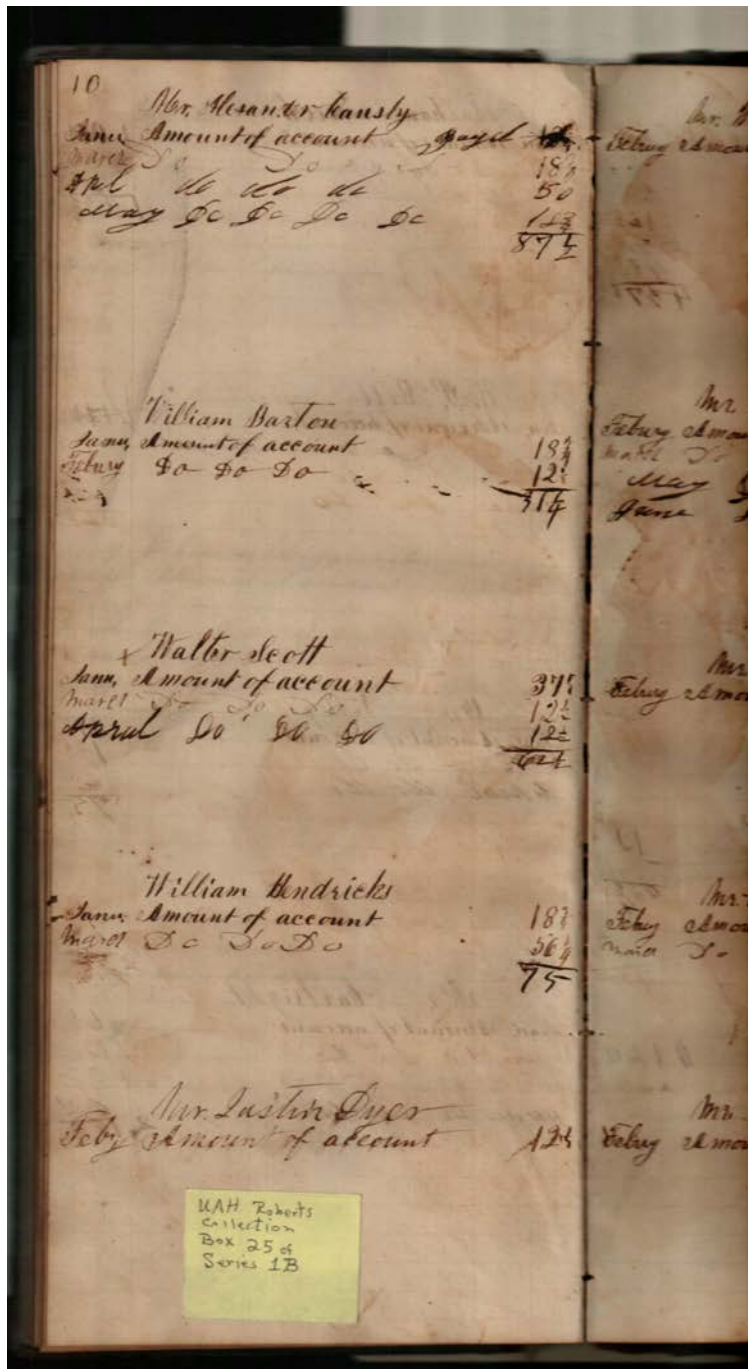 10
Mr. Alexander
Janu, Amount of account payd
March Do Do 18¾
Apl do do do 50
May Do Do Do Do 18¾
87½
William Barton
Janu, Amount of account 18¾
Febury Do Do Do 12½
31¼
Walter Scott
Janu, Amount of account 37½
March Do Do Do 12½
Aprul Do Do Do 12½
62½
William Hendricks
Janu, Amount of account 18¾
March Do Do Do 56¼
75
Mr. Justin Dyer
Feby Amount of account 12½
UAH Roberts
Collection
Box 25 of
Series 1B
Mr.
Febury Amou
Mr
Febury Amou
March Do
May
June
Mr
Febury Amo
Mr.
Febuy Amou
March Do
Mr.
Febury Amou